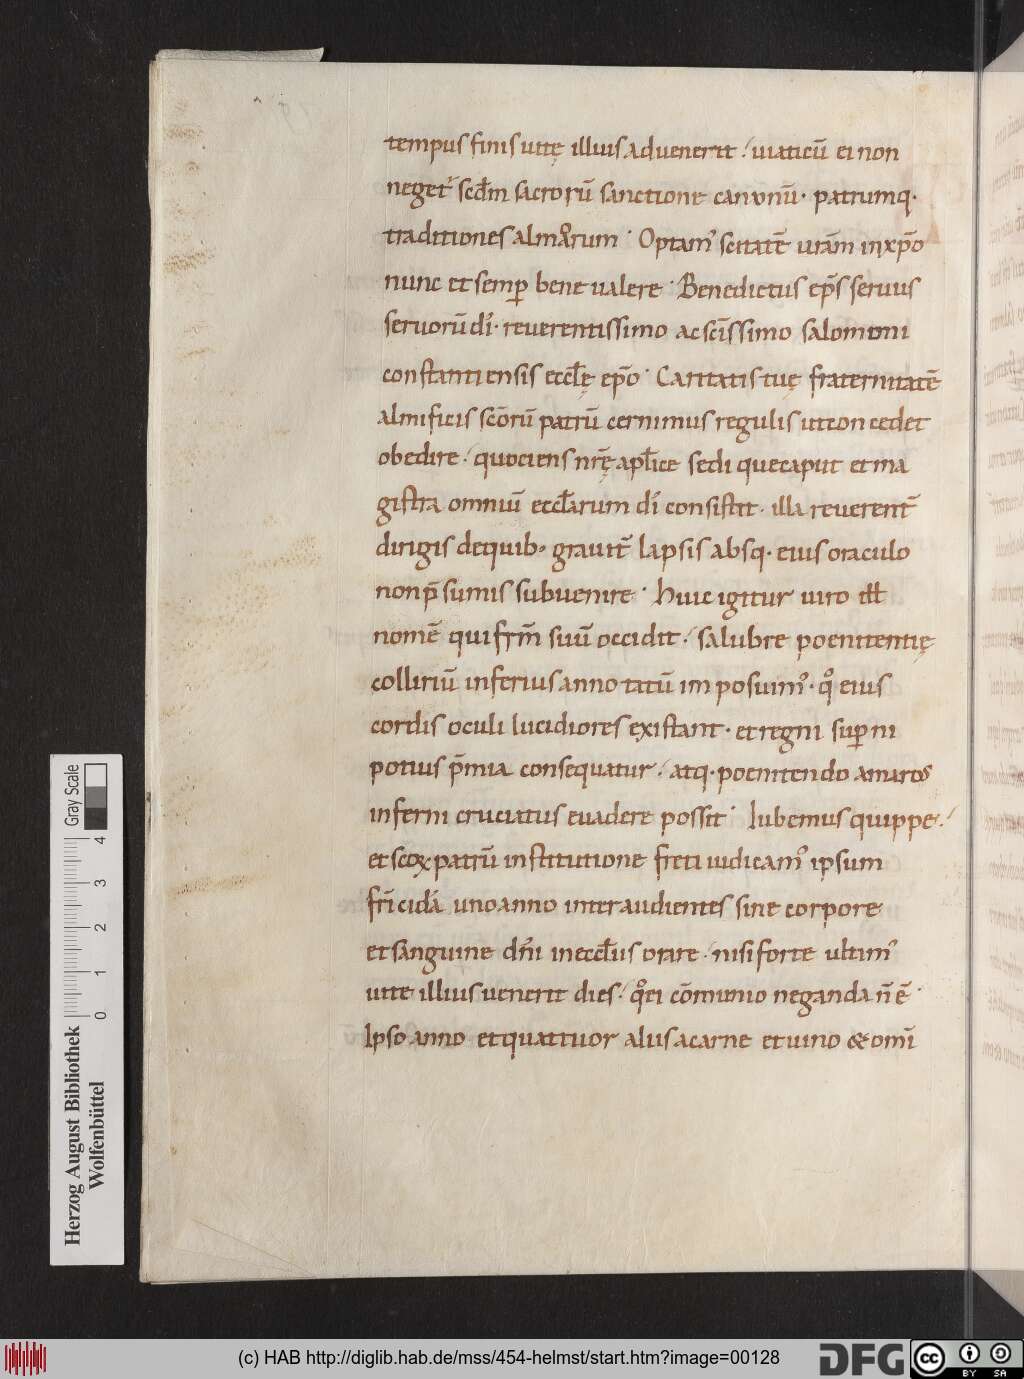 tempus finis uitę illius aduenerit. uiaticū ei non
neget͛ scd̄m sacrorū sanctione canonū. patrumq.
traditiones almarum. Optam᾽ scitatē urām in xp̄o
nunc et semp̄ bene ualere. Benedictus ep̄s seruus
seruorū dī. reuerentissimo ac scīssimo salomoni
constantiensis eccl̄ę ep̄o. Caritatis tuę fraternitatē
almificis scōrū patrū cernimus regulis iure concedet
obedire. quociens nrę̄ apl̄ice sedi que caput et ma
gistra omniū eccl̄arum dī consistit. illa reuerent̄
dirigis de quib; grauit̄ lapsis absq. eius oraculo
non p̄sumis subuenire. Huic igitur uiro ill̄
nomē qui fr̄m suū occidit. salubre poenitentię
collirū inferius annotatū imposuim᾽. qͦ eius
cordis oculi lucidiores existant. et regni sup̄ni
potius p̄mia consequatur. atq. poenitendo amaros
inferni cruciatus euadere possit. Iubemus quippe.
et scoꝝ patrū institutione freti iudicam᾽ ipsum
fr̄icidā uno anno inter audientes sine corpore
et sanguine dn̄i in eccl̄iis orare. nisi forte ultim᾽
uite illius uenerit dies. qͦ ei cōmunio neganda n̄ ē.
Ipso anno et quattuor aliis a carne et uino & omī
Herzog August Bibliothek
Wolfenbüttel
0 1 2 3 4
Gray Scale
(c) HAB http://diglib.hab.de/mss/454-helmst/start.htm?image=00128
DFG
cc BY SA